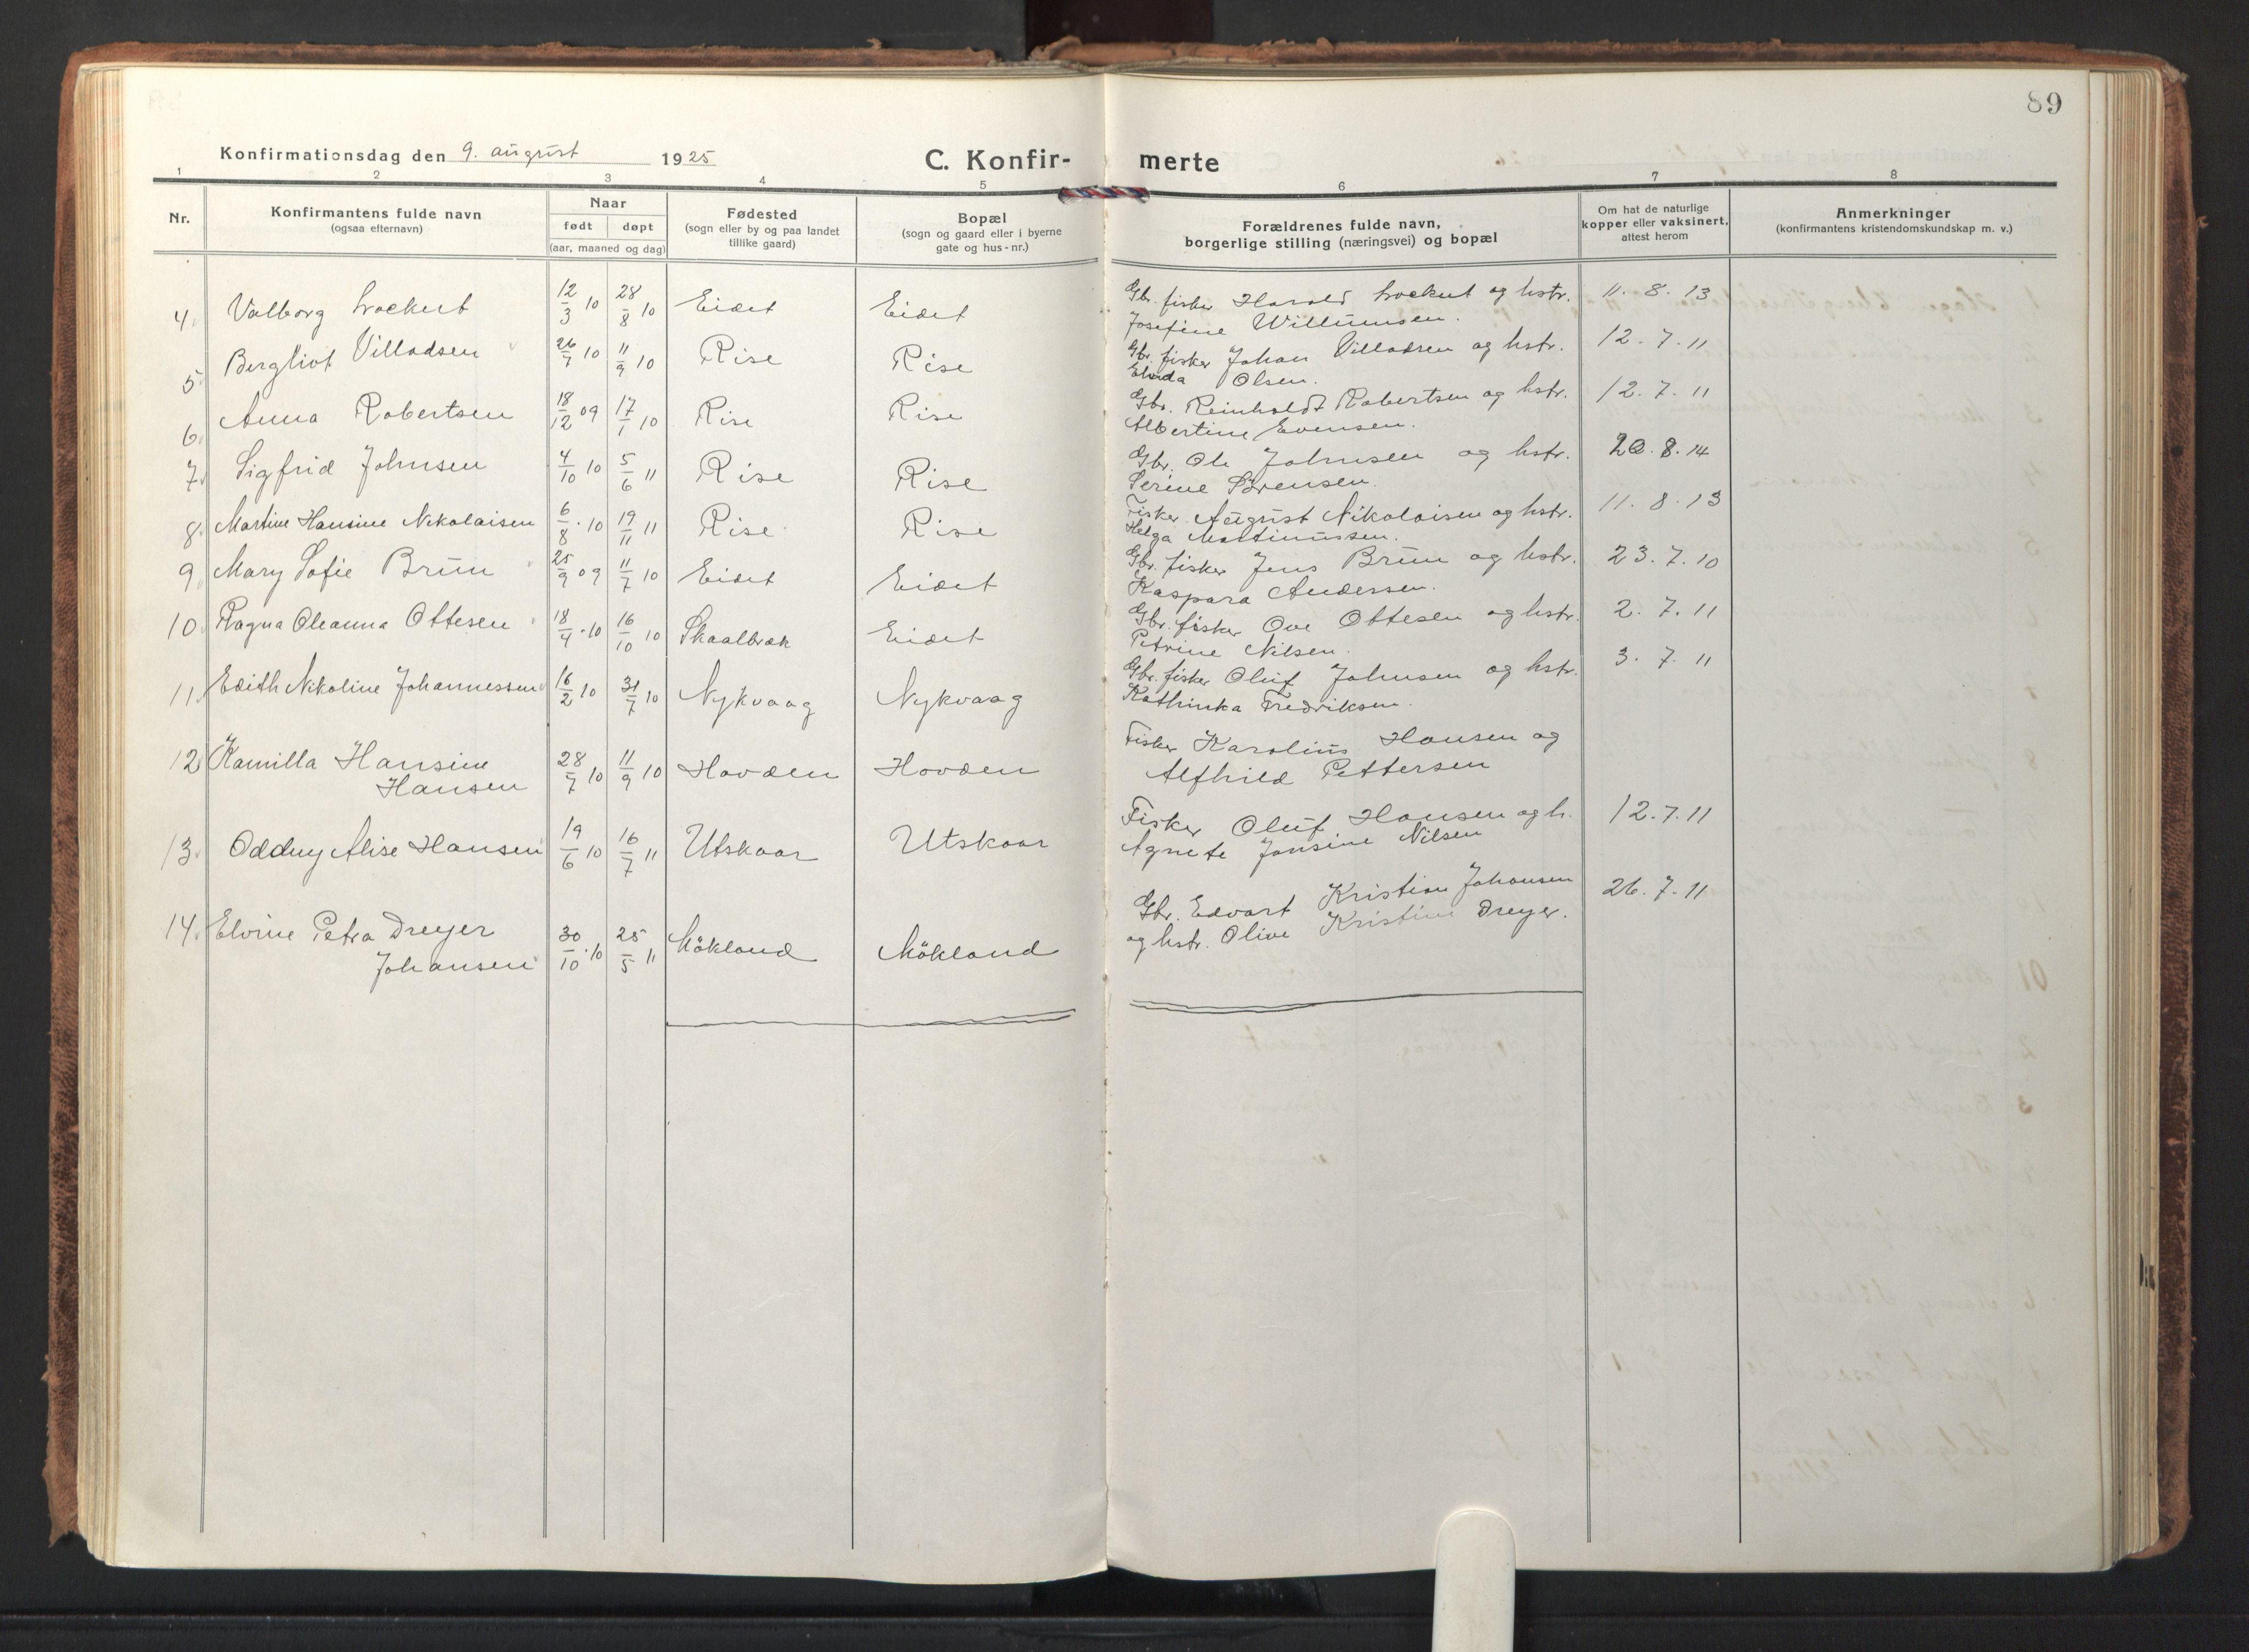 89
Konfirmationsdag den 9. august 1925
C. Konfir-
merte
1 2 3 4 5 6 7 8
Nr.
Konfirmantens fulde navn
(ogsaa efternavn)
Naar
født døpt
(aar, maaned og dag)
Fødested
(sogn eller by og paa landet
tillike gaard)
Bopæl
(sogn og gaard eller i byerne
gate og hus-nr.)
Forældrenes fulde navn,
borgerlige stilling (næringsvei) og bopæl
Om hat de naturlige
kopper eller vaksinert,
attest herom
Anmerkninger
(konfirmantens kristendomskundskap m. v.)
4. Valborg Lockert 12/3 10 28/8 10 Eidet Eidet Gbr. fisker Harald Lockert og hstr. 11. 8. 13
Josefine Willumsen.
5. Bergliot Villadsen 26/7 10 11/9 10 Rise Rise Gbr. fisker Johan Villadsen og hstr. 12. 7. 11
Olsen.
6. Anna Robertsen 18/12 09 17/1 10 Rise Rise Gbr. Reinholdt Robertsen og hstr. 12. 7. 11
Albertine Evensen.
7. Sigfrid Johnsen 4/10 10 5/6 11 Rise Rise Gbr. Ole Johnsen og hstr. 20. 8. 14
Serine Sörensen.
8. Martine Hansine Nikolaisen 6/8 10 19/11 11 Rise Rise Fisker August Nikolaisen og hstr. 11. 8. 13
Helga Martinussen.
9. Mary Sofie Brun 25/9 09 11/7 10 Eidet Eidet Gbr. fisker Jens Brun og hstr. 23. 7. 10
Kaspara Andersen.
10. Ragna Oleanna Ottesen 18/4 10 16/10 10 Skaalbrek Eidet Gbr. fisker Ove Ottesen og hstr. 2. 7. 11
Petrine Nilsen.
11. Edith Nikoline Johannessen 16/2 10 31/7 10 Nykvaag Nykvaag Gbr. fisker Oluf Johnsen og hstr. 3. 7. 11
Kathinka Fredriksen.
12 Kamilla Hansine 28/7 10 11/9 10 Hovden Hovden Fisker Karolius Hansen og
Hansen Alfhild Pettersen
13. Oddny Alise Hansen 19/6 10 16/7 11 Utskaar Utskaar Fisker Oluf Hansen og h. 12. 7. 11
Agnete Jonsine Nilsen
14. Elvine Petra Dreyer 30/10 10 25/5 11 Mökland Mökland Gbr. Edvart Kristian Johansen 26. 7. 11
Johansen og hstr. Olive Kristine Dreyer.